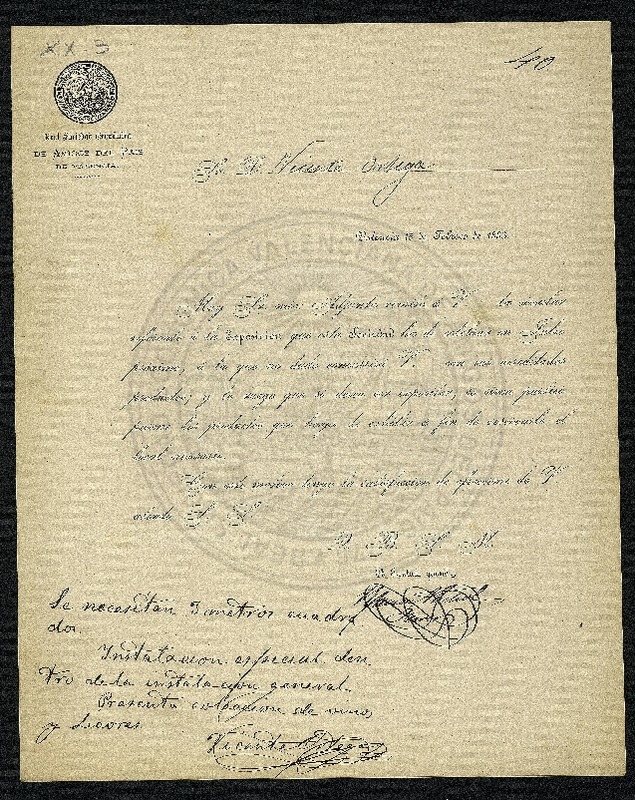 XX-3
40
Real Sociedad Económica
DE AMIGOS DEL PAIS
DE VALENCIA.
Sr. D. Vicente Ortega
Valencia 15 de Febrero de 1883
Muy Sr. mio: Adjunta remito á V. la
referente á la Exposición que esta Sociedad ha de celebrar en Julio
próximo, á la que no dudo concurrirá V. con sus acreditados
productos; y le ruego que
fueren los productos que haya de exhibir á fin de reservarle el
local necesario.
Con este motivo tengo la satisfaccion de ofrecerme de V.
atento S. S.
Q. B. S. M.
Se necesitan 3 metros cuadra
dos.
Instalacion especial den
tro de la instalacion general.
Presenta coleccion de vinos
y licores
Vicente Ortega